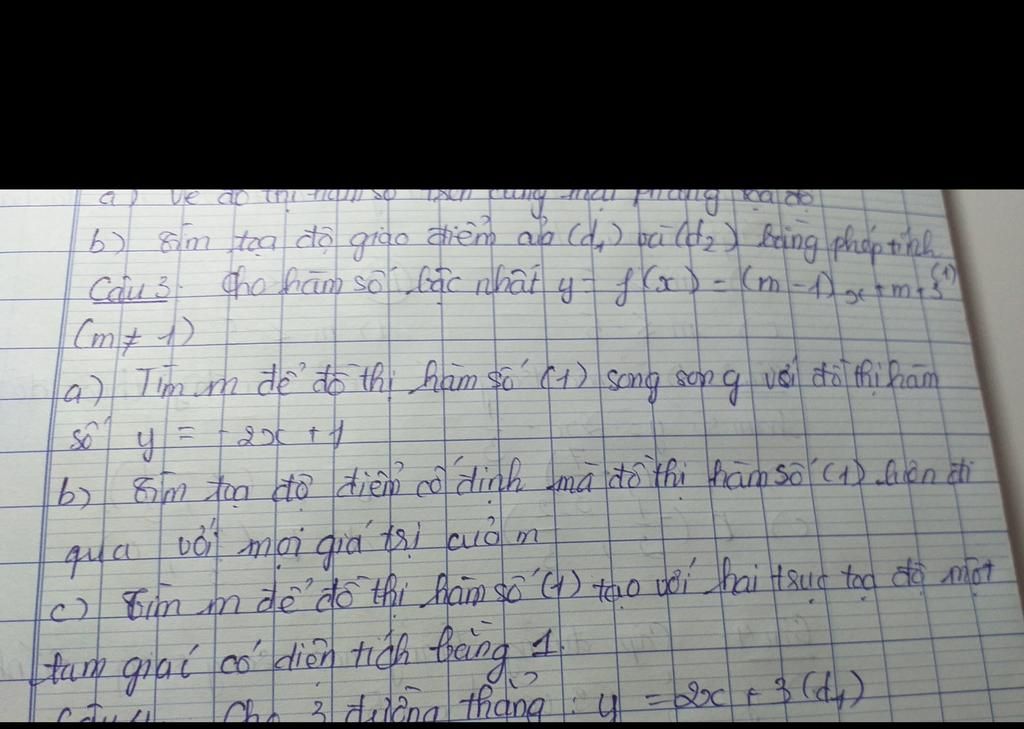 a) Vẽ đồ thị hàm số trên cùng mặt phẳng tọa độ
b) Tìm tọa độ giao điểm của (d1) và (d2) bằng phép tính
Câu 3: Cho hàm số bậc nhất y = f(x) = (m - 1)x + m + 3 (1)
(m ≠ 1)
a) Tìm m để đồ thị hàm số (1) song song với đồ thị hàm
số y = -2x + 1
b) Tìm tọa độ điểm cố định mà đồ thị hàm số (1) luôn đi
qua với mọi giá trị của m
c) Tìm m để đồ thị hàm số (1) tạo với hai trục tọa độ một
tam giác có diện tích bằng 1.
Câu 4 Cho 3 đường thẳng : y = 2x + 3 (d1)